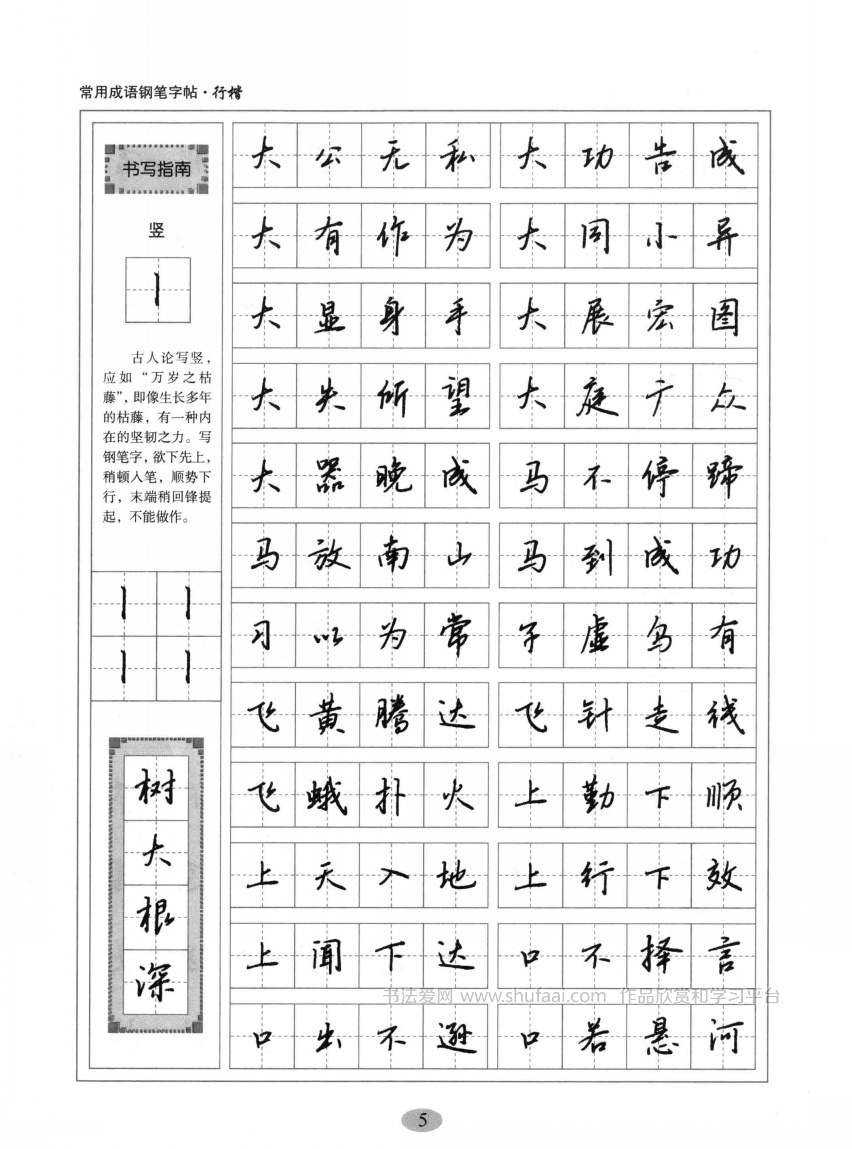 常用成语钢笔字帖·行楷
书写指南
竖
古人论写竖，
应如“万岁之枯
藤”，即像生长多年
的枯藤，有一种内
在的坚韧之力。写
钢笔字，欲下先上，
稍顿入笔，顺势下
行，末端稍回锋提
起，不能做作。
树
大
根
深
大公无私 大功告成
大有作为 大同小异
大显身手 大展宏图
大失所望 大庭广众
大器晚成 马不停蹄
马放南山 马到成功
习以为常 子虚乌有
飞黄腾达 飞针走线
飞蛾扑火 上勤下顺
上天入地 上行下效
上闻下达 口不择言
书法爱网 www.shufaai.com 作品欣赏和学习平台
口出不逊 口若悬河
5